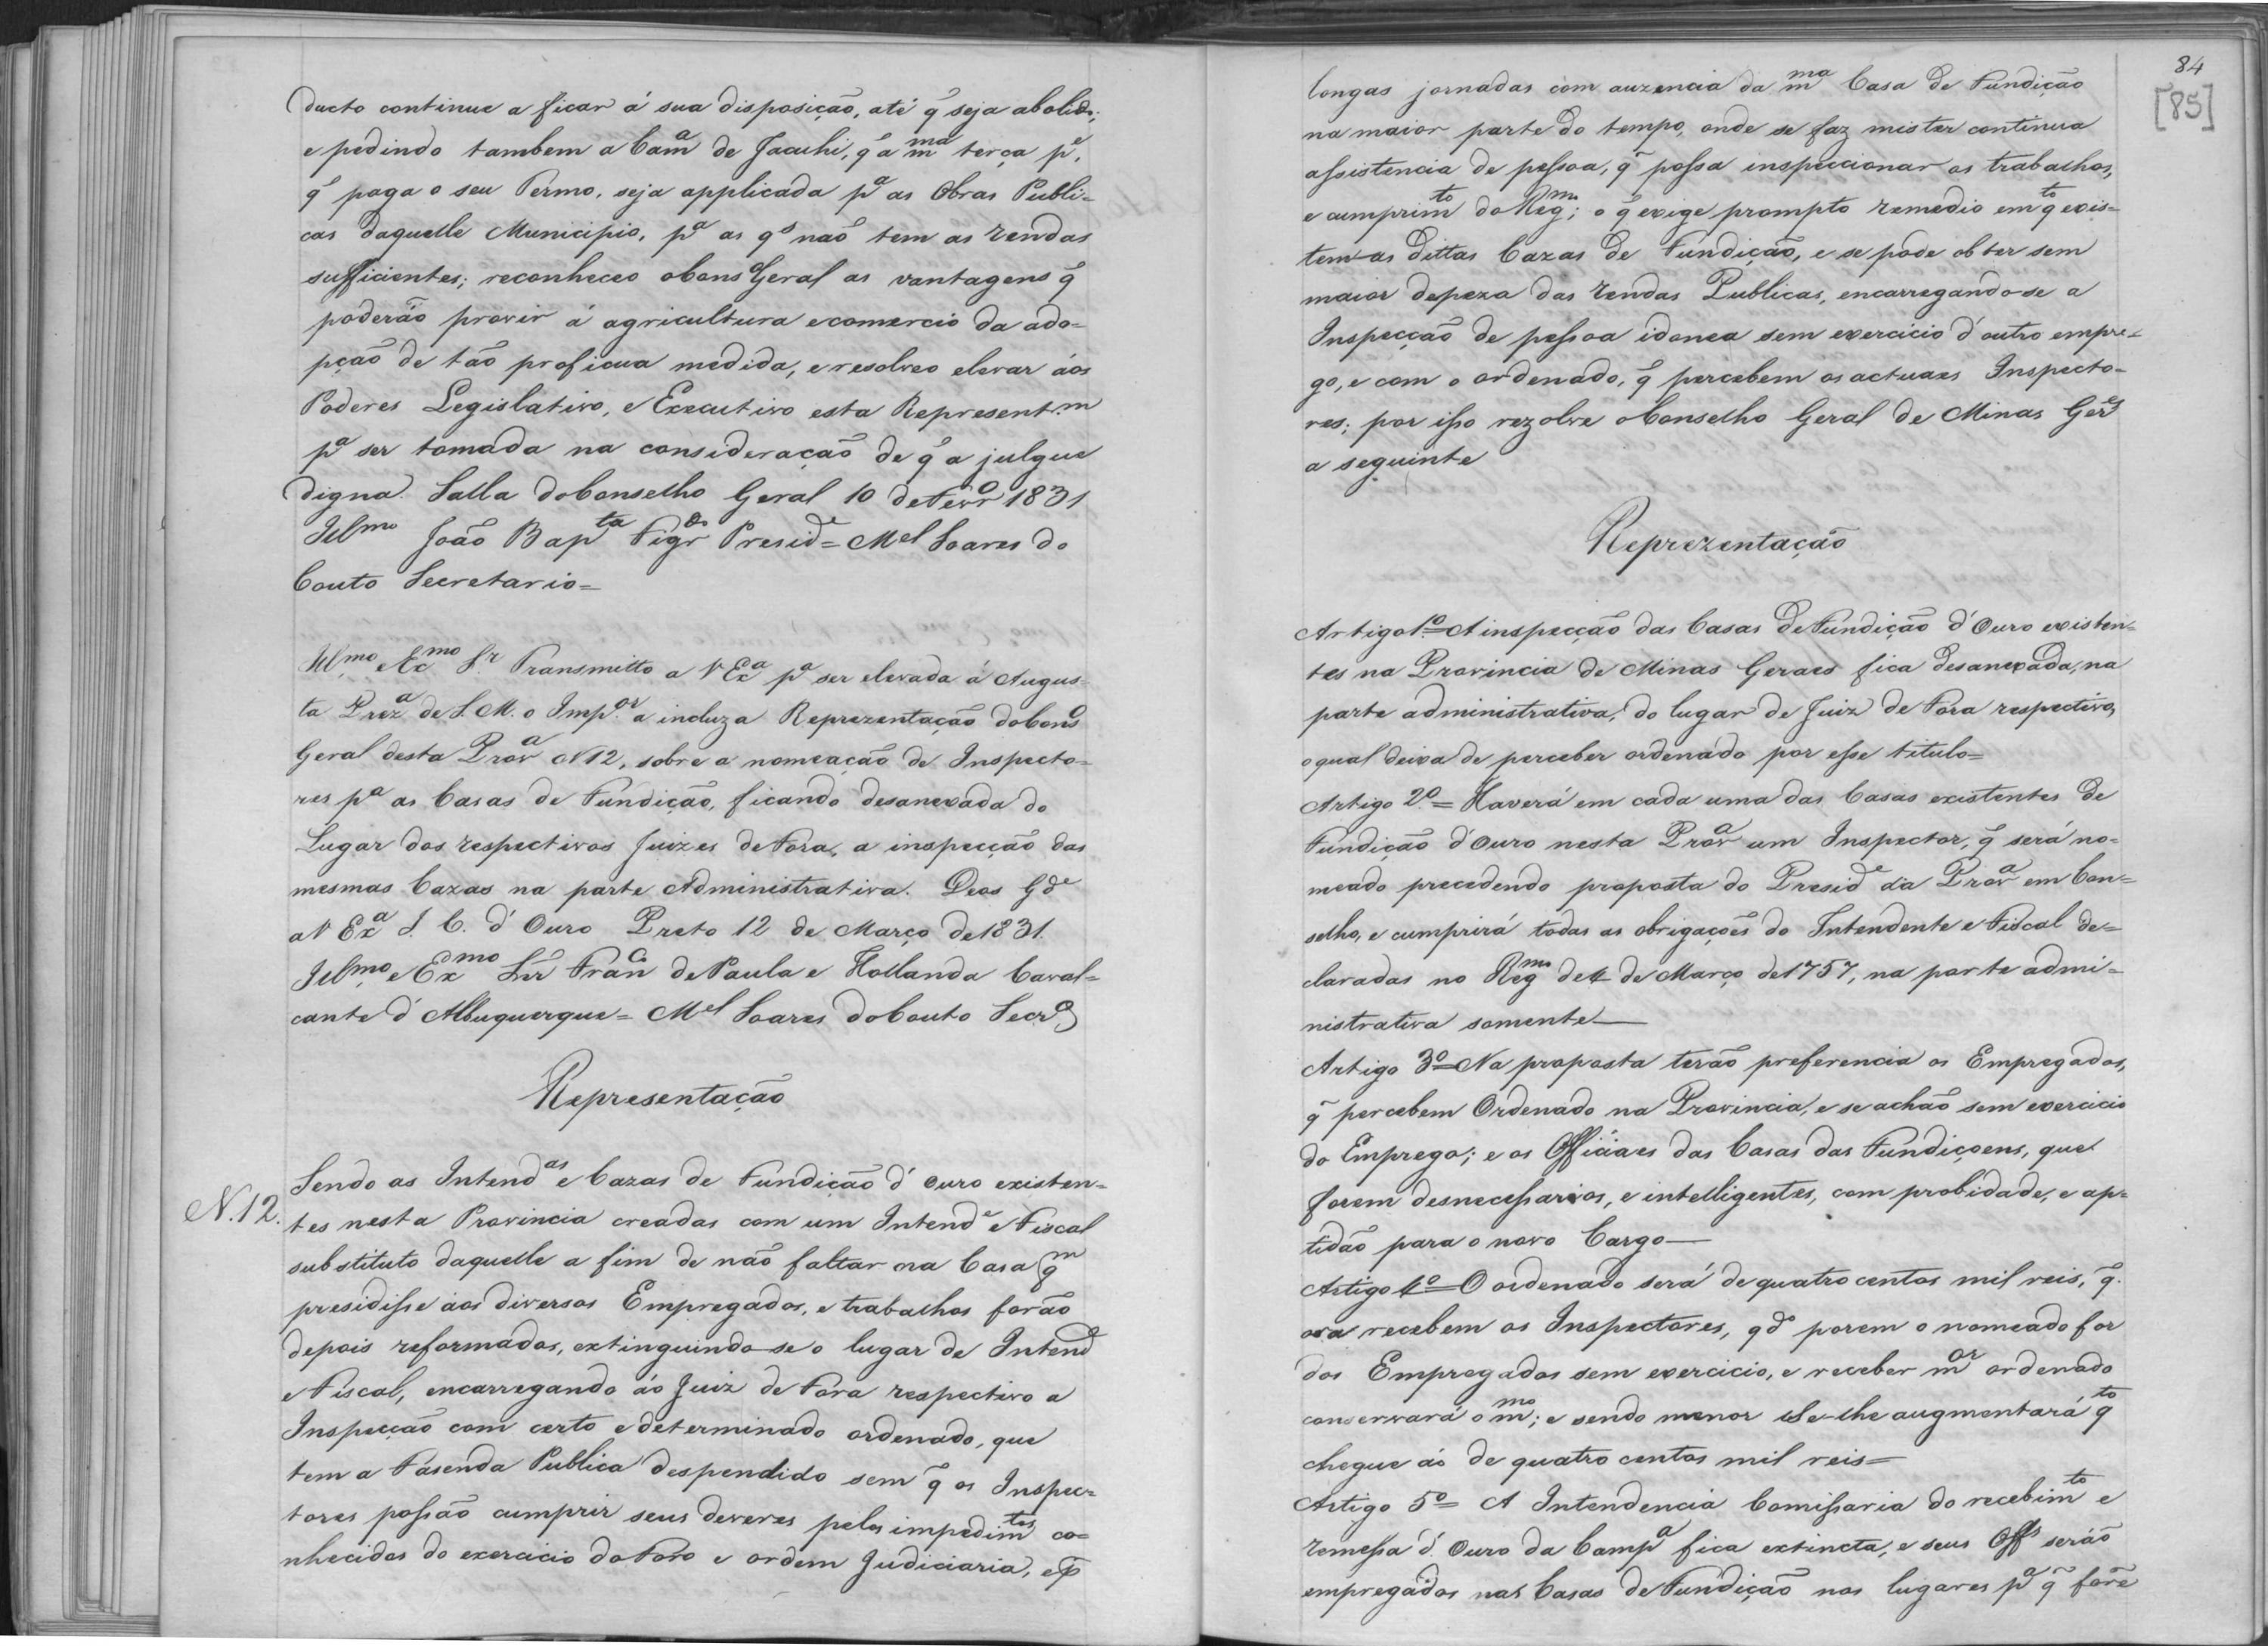 ducto continue a ficar á sua disposição, até q̃ seja abolido;
e pedindo tambem a Camª de Jacuhi, q̃ a mma terça pe,
q̃ paga o seu Termo, seja applicada pª as Obras Publi=
cas daquelle Municipio, pª as qs naõ tem as rendas
sufficientes; reconheceo o Conso Geral as vantagens q̃
poderaõ provir á agricultura e comercio da ado=
pção de taõ proficua medida, e resolveo elevar áos
Poderes Legislativo, e Executivo esta Representm
pª ser tomada na consideraçaõ de q̃ a julgue
digna. Salla do Conselho Geral 10 de Fevro 1831
Illmo Joaõ Bapta Figrdo Preside = Mel Soares do
Couto Secretario =
Illmo e Exmo Sr Transmitto a V Exª pª ser elevada á Augus=
ta Prezª de S. M. o Impor a incluza Reprezentação do Conso
Geral desta Provª N 12, sobre a nomeação de Inspecto=
res pª as Casas de Fundição, ficando desanexada do
Lugar dos respectivos Juizes de Fora, a inspecção das
mesmas Cazas na parte Administrativa. Deos Gde
a V Exª I. C. d'Ouro Preto 12 de Março de 1831.
Illmo e Exmo Snr Franco de Paula e Hollanda Caval=
cante d'Albuquerque = Mel Soares do Couto Secro
Representação
N. 12.
Sendo as Intendas e Cazas de Fundição d'ouro existen=
tes nesta Provincia creadas com um Intende e Fiscal
substituto daquelle a fim de naõ faltar na Casa qm
presidisse áos diversos Empregados, e trabalhos foraõ
depois reformadas, extinguindo-se o lugar de Intende
e Fiscal, encarregando áo Juiz de Fora respectivo a
Inspecção com certo e determinado ordenado, que
tem a Fasenda Publica despendido sem q̃ os Inspec=
tores possaõ cumprir seus deveres pelos impedimtos co=
nhecidos do exercicio do Foro e ordem Judiciaria, e p
84
[85]
longas jornadas com auzencia da mma Casa de Fundição
na maior parte do tempo, onde se faz mister continua
assistencia de pessoa, q̃ possa inspeccionar os trabalhos,
e cumprimto do Regmo; o q̃ exige prompto remedio emqto exis=
tem as dittas Cazas de Fundição, e se pode obter sem
maior depeza das rendas Publicas, encarregando-se a
Inspecção de pessoa idonea sem exercicio d'outro empre=
go, e com o ordenado, q̃ percebem os actuaes Inspecto=
res; por isso rezolve o Conselho Geral de Minas Geres
a seguinte
Reprezentação
Artigo 1º = A inspecção das Casas de Fundição d'Ouro existen=
tes na Provincia de Minas Geraes fica desanexada, na
parte administrativa, do lugar de Juiz de Fora respectivo,
o qual deixa de perceber ordenado por esse titulo =
Artigo 2º = Haverá em cada uma das Casas existentes de
Fundição d'Ouro nesta Provª um Inspector, q̃ será no=
meado precedendo proposta do Preside da Provª em Con=
selho, e cumprirá todas as obrigações do Intendente e Fiscal de=
claradas no Regmo de 4 de Março de 1757, na parte admi=
nistrativa somente—
Artigo 3º = Na proposta teraõ preferencia os Empregados,
q̃ percebem Ordenado na Provincia, e se achaõ sem exercicio
do Emprego; e os Officiaes das Casas das Fundiçoens, que
forem desnecessarios, e intelligentes, com probidade, e ap=
tidaõ para o novo Cargo—
Artigo 4º = O ordenado será de quatro centos mil reis, q̃.
ora recebem os Inspectores, qdo porem o nomeado for
dos Empregados sem exercicio, e receber mor ordenado
conservará o mmo; e sendo menor Se-lhe augmentará qto
chegue áo de quatro centos mil reis =
Artigo 5º = A Intendencia Comissaria do recebimto e
remessa d'Ouro da Campª fica extincta, e seus Offs seraõ
empregados nas Casas de Fundição nos lugares pª q̃ forẽ